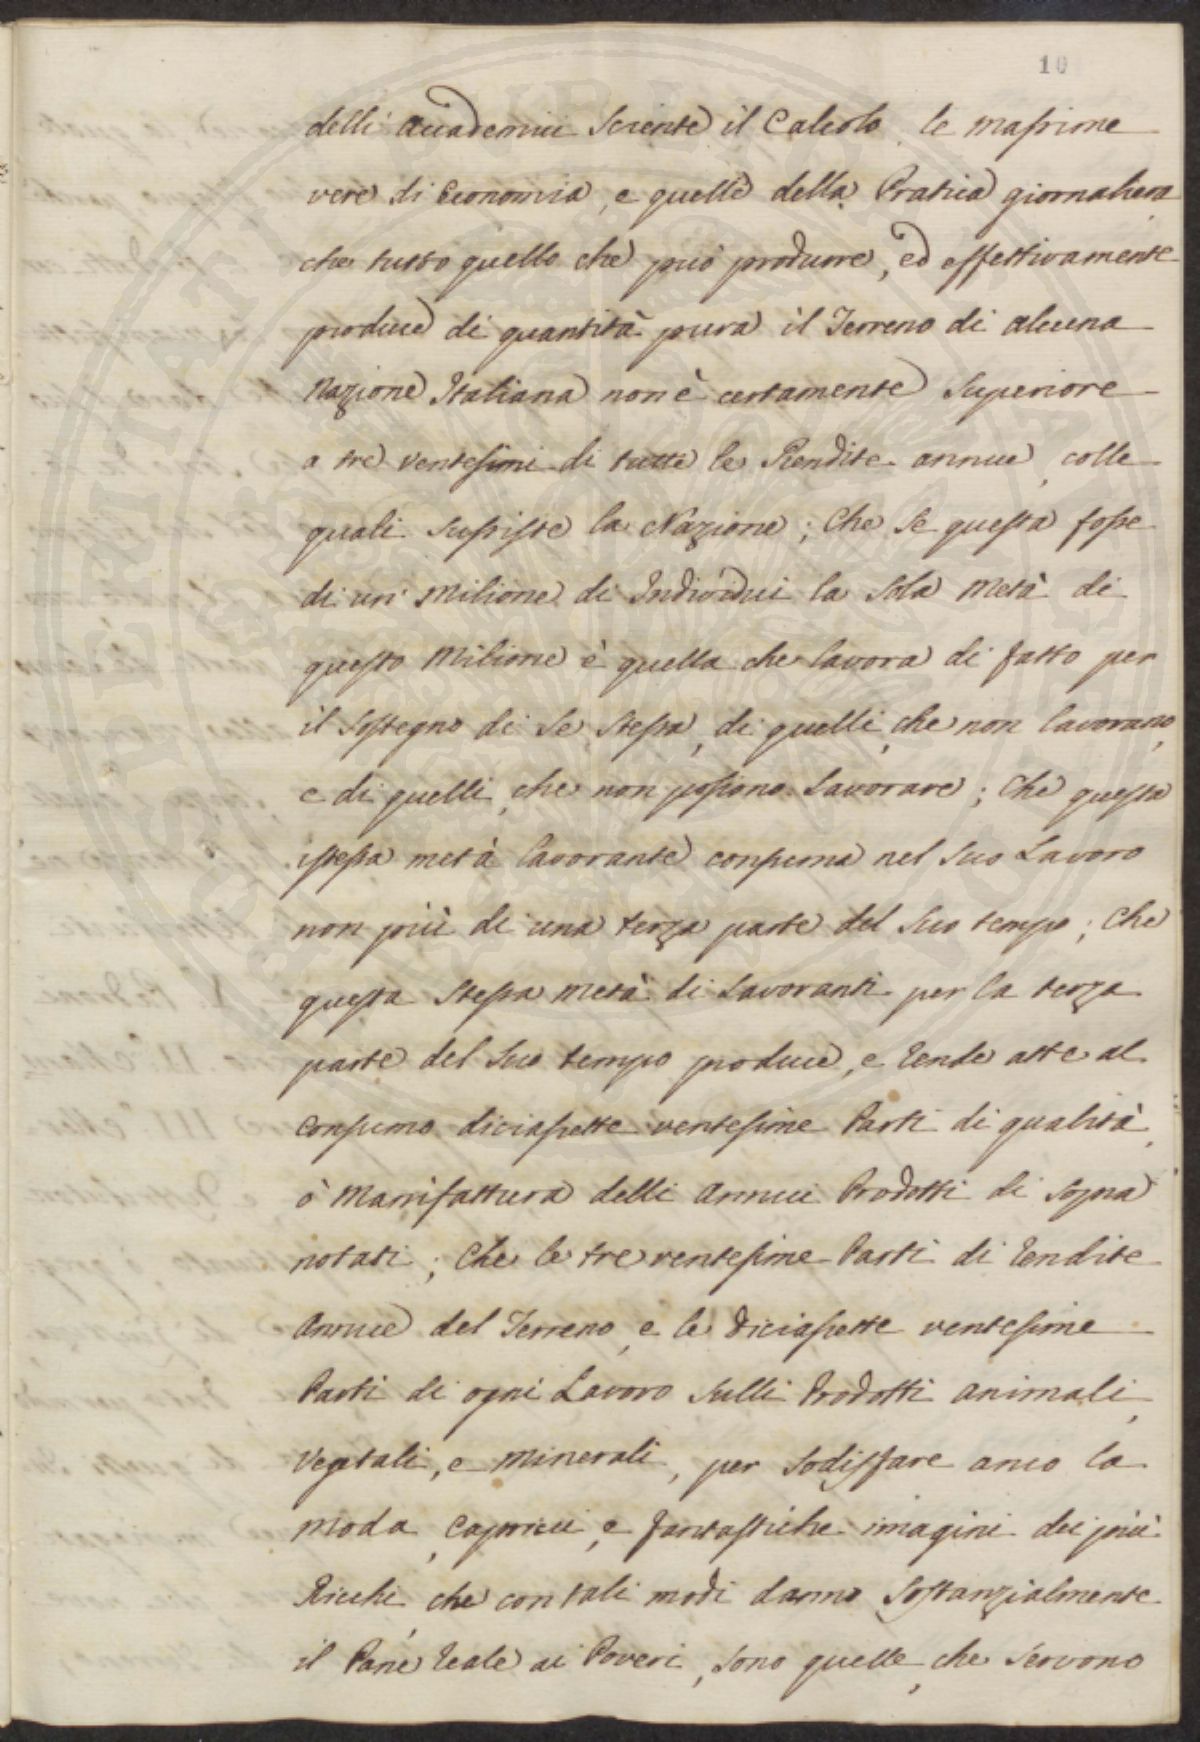 10
delli Academici Sciente il Calcolo le massime
vere di Economia, e quelle della Pratica giornaliera,
che tutto quello che può produrre, ed effettivamente
produce di quantità pura il Terreno di alcuna
Nazione Italiana non è certamente Superiore
a tre ventesimi di tutte le Rendite annue, colle
quali Sussiste la Nazione; Che Se questa fosse
di un Milione di Individui la Sola Metà di
questo Milione è quella che lavora di fatto per
il Sostegno di Se Stessa, di quelli, che non lavorano,
e di quelli, che non possono Lavorare; Che questa
istessa metà lavorante consuma nel Suo Lavoro
non più di una terza parte del Suo tempo; Che
questa Stessa Metà di Lavoranti per la terza
parte del Suo tempo produce, e rende atte al
Consumo diciassette ventesime Parti di qualità,
ò Manifattura delli Annui Prodotti di Sopra
notati; Che le tre ventesime Parti di rendite
Annue del Terreno, e le diciassette ventesime
Parti di ogni Lavoro Sulli Prodotti animali,
Vegetali, e Minerali, per Sodisfare anco la
Moda, Capricci, e fantastiche imagini dei più
Ricchi, che con tali modi danno Sostanzialmente
il Pane reale ai Poveri, Sono quelle, che Servono